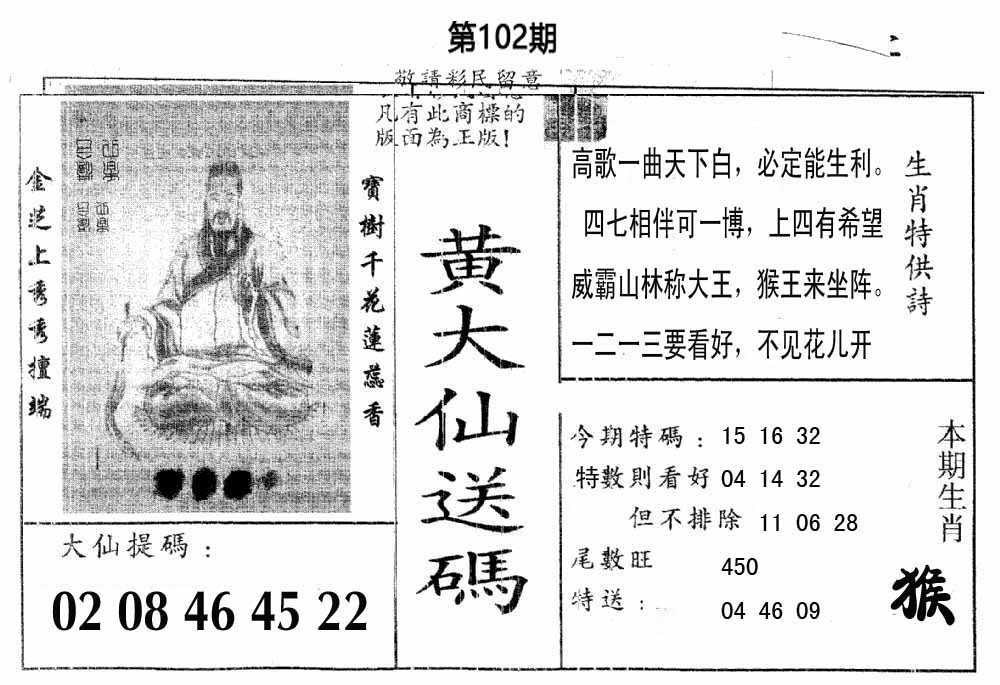 第102期
敬請彩民留意
凡有此商標的
版面為正版!
金
上
秀
秀
擅
端
寶樹千花蓮蕊香
黃大仙送碼
大仙提碼：
02 08 46 45 22
生肖特供詩
高歌一曲天下白，必定能生利。
四七相伴可一博，上四有希望
威霸山林称大王，猴王来坐阵。
一二一三要看好，不见花儿开
今期特碼：15 16 32
特數則看好 04 14 32
但不排除 11 06 28
尾數旺 450
特送：04 46 09
本期生肖
猴